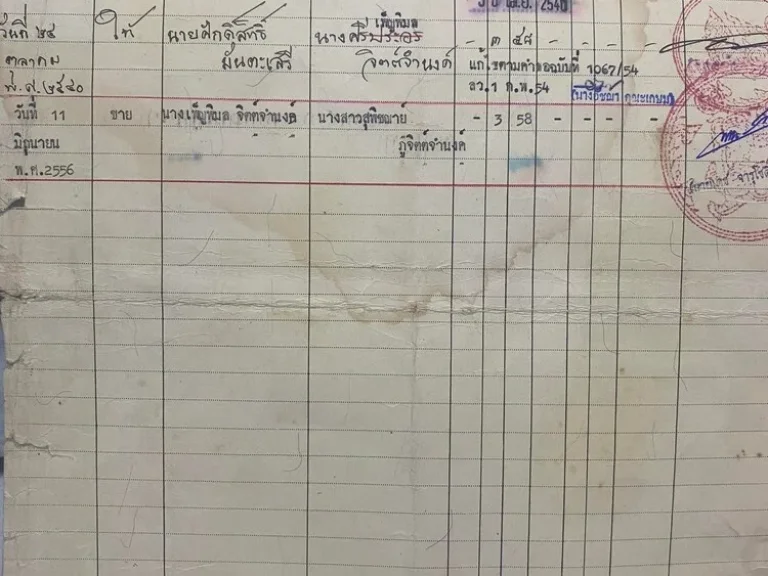 เพ็ญพิมล
วันที่ ๒๔ ให้ นายศักดิ์สิทธิ์ นางศรีประอร - ๓ ๕๘ - - - -
ตุลาคม มันตะเสวี จิตต์จำนงค์ แก้ไขตามคำขอฉบับที่ 1062/54
พ.ศ.๒๕๔๐ ลว.1 ก.พ.54
วันที่ 11 ขาย นางเพ็ญพิมล จิตต์จำนงค์ นางสาวสุทิชฌาย์ - 3 58 - - - -
มิถุนายน ภูจิตต์จำนงค์
พ.ศ.2556